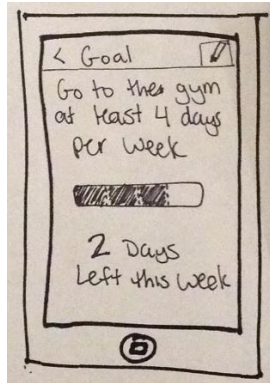 < Goal
Go to the gym
at least 4 days
per week
2 Days
Left this week